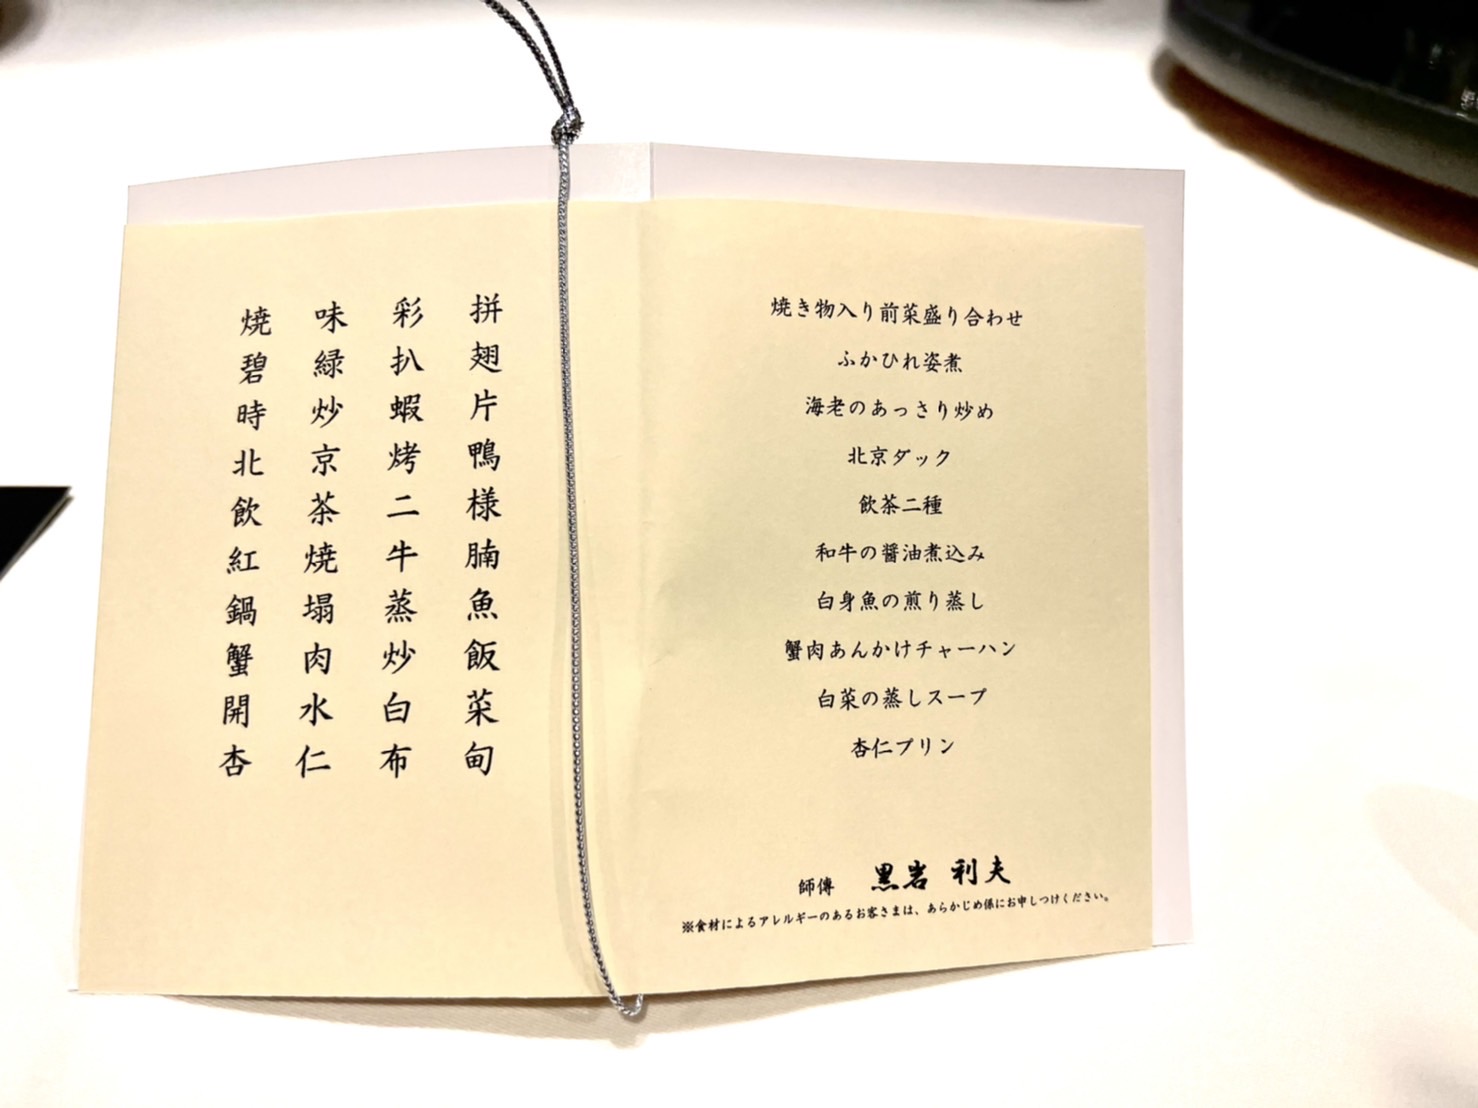 焼味彩拼
碧緑扒翅
時炒蝦片
北京烤鴨
飲茶二様
紅焼牛腩
鍋塌蒸魚
蟹肉炒飯
開水白菜
杏仁布甸
焼き物入り前菜盛り合わせ
ふかひれ姿煮
海老のあっさり炒め
北京ダック
飲茶二種
和牛の醤油煮込み
白身魚の煎り蒸し
蟹肉あんかけチャーハン
白菜の蒸しスープ
杏仁プリン
師傅 黒岩 利夫
※食材によるアレルギーのあるお客さまは、あらかじめ係にお申しつけください。